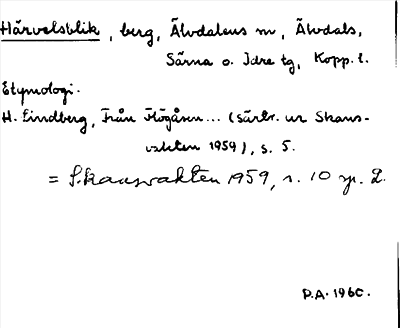 Härvelsblik, berg, Älvdalens sn, Älvdals,
Särna o. Idre tg, Kopp. l.
Etymologi.
H. Lindberg, Från Högåsen... (särtr. ur Skans-
vakten 1959), s. 5.
= Skansvakten 1959, s. 10 sp. 2.
P.A. 1960.